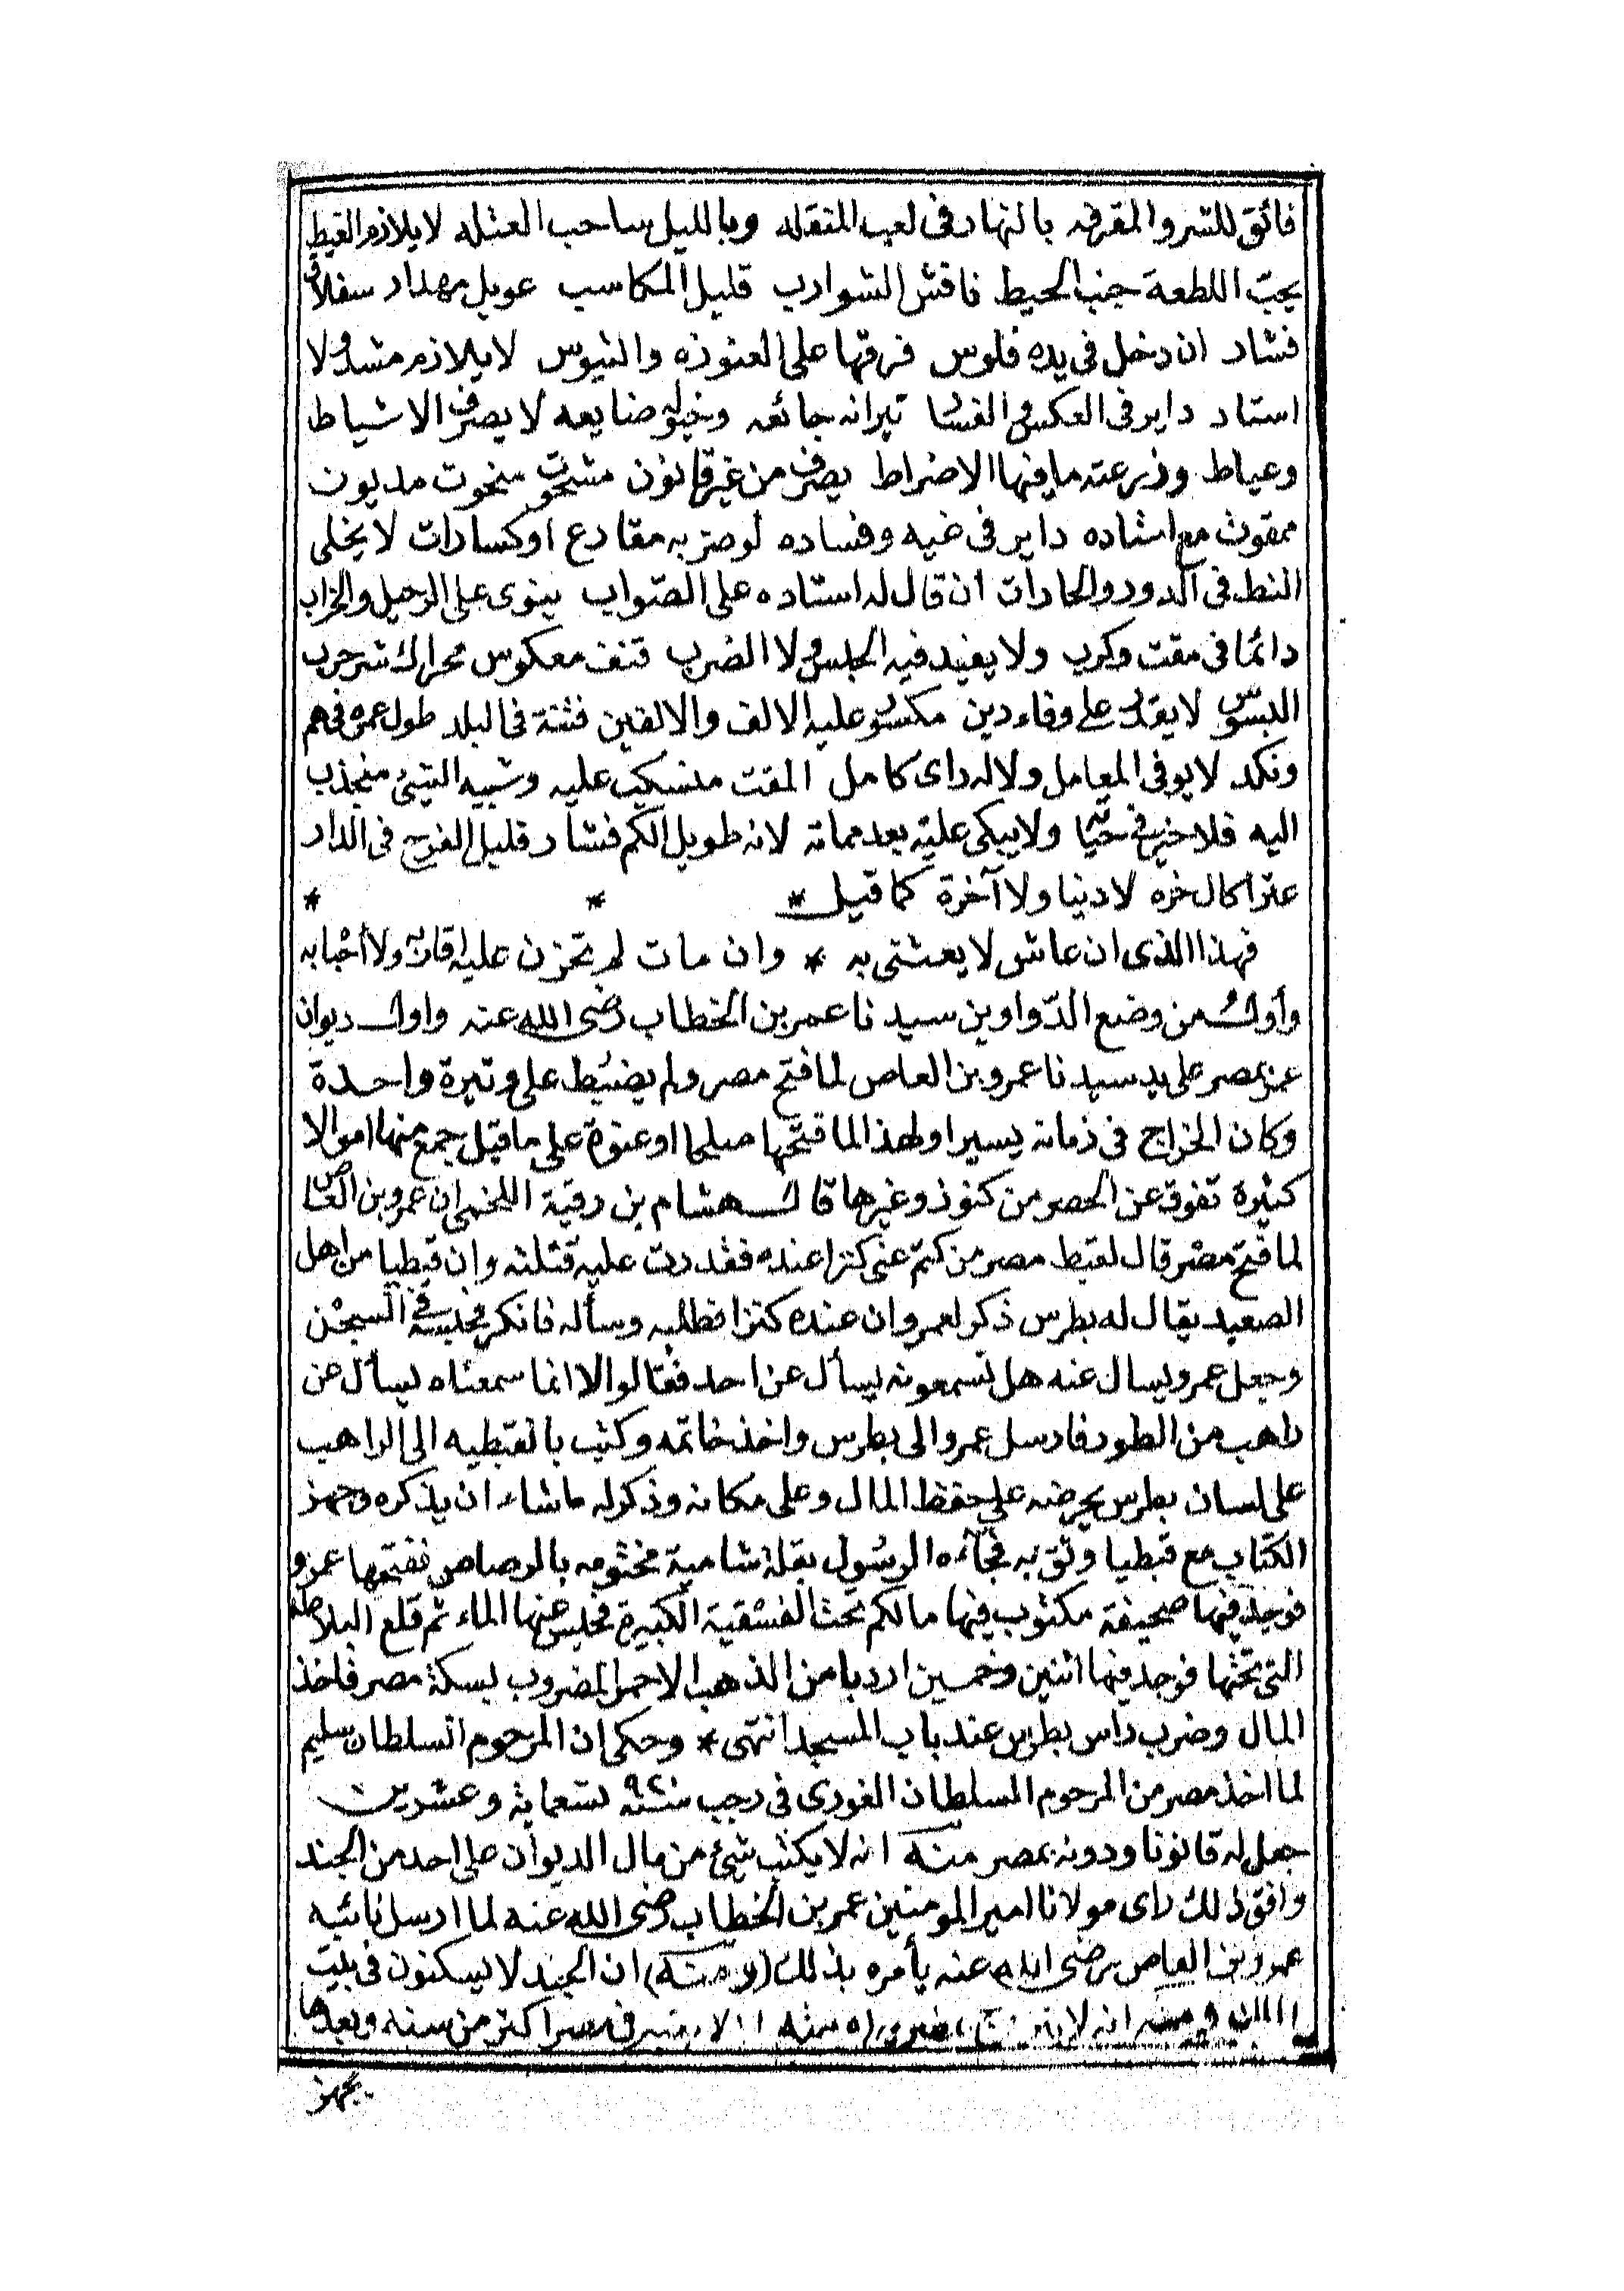 فائق للشر والمقرفه بالنهار فى لعب المنقله وبالليل صاحب العتله لا يلازم الغيط
يحب اللطعة جنب الحيط نافش الشوارب قليل المكاسب عويل مهدار سفلاق
فشار ان دخل فى يده فلوس فرقها على العنوزه والتيوس لا يلازم مشد ولا
استاد داير فى العكس والفساد تيرانه جائعه وخيوله ضايعه لا يصرف الا شياط
وعياط وزرعته ما فيها الاضراط يصرف من غير قانون مشحوت منحوت مديون
ممقوت مع استاده داير فى غيه وفساده لو ضربه مقارع او كسارات لا يخلى
النط فى الدور والحارات ان قال له استاده على الصواب ينوى على الرحيل والخراب
دائما فى مقت وكرب ولا يفيد فيه الحبس ولا الضرب قنف معكوس محراك شر حرب
البسوس لا يقدر على وفاء دين مكسور عليه الالف والالفين فتنة فى البلد طول عمره فى هم
ونكد لا يوفى المعامل ولا له راى كامل المقت منسكب عليه وشبيه الشئ منجذب
اليه فلا خير فى حياته ولا يبكى عليه بعد مماته لانه طويل الكم فشار قليل الفرح فى الدار
عترا كال خره لا دنيا ولا آخرة كما قيل * * *
فهذا الذى ان عاش لا يعتنى به * وان مات لم تحزن عليه اقاربه ولا أحبابه
وأول من وضع الدواوين سيدنا عمر بن الخطاب رضى الله عنه واول ديوان
عمر بمصر على يد سيدنا عمرو بن العاص لما فتح مصر ولم يضبط على وتيرة واحدة
وكان الخراج فى زمانه يسيرا ولهذا لما فتحها صلحا او عنوة على ما قيل جمع منها اموالا
كثيرة تفوق عن الحصر من كنوز وغيرها قال هشام بن رقية اللخمى ان عمرو بن العاص
لما فتح مصر قال لقبط مصر من كتم عنى كنزا عنده فقدرت عليه قتلته وان قبطيا من اهل
الصعيد يقال له بطرس ذكر لعمرو ان عنده كنزا فطلبه وسأله فانكر فحبسه فى السجن
وجعل عمرو يسال عنه هل تسمعونه يسأل عن احد فقالوا لا انما سمعناه يسأل عن
راهب من الطور فارسل عمرو الى بطرس واخذ خاتمه وكتب بالقبطيه الى الراهب
على لسان بطرس يحرضه على حفظ المال وعلى مكانه وذكر له ما شاء ان يذكره وجهز
الكتاب مع قبطيا وثق به فجآءه الرسول بقلة شامية مختومه بالرصاص ففتحها عمرو
فوجد فيها صحيفة مكتوب فيها ما لكم تحت الفسقية الكبيرة فحبس عنها الماء ثم قلع البلاطه
التى تحتها فوجد فيها اثنين وخمسين اردبا من الذهب الاحمر المضروب بسكة مصر فاخذ
المال وضرب راس بطرس عند باب المسجد انتهى * وحكى ان المرحوم السلطان سليم
لما اخذ مصر من المرحوم السلطان الغورى فى رجب سنة ٩٢٠ تسعماية وعشرين
جعل له قانونا ودونه بمصر منه انه لا يكتب شئ من مال الديوان على احد من الجند
وافق ذلك راى مولانا امير المومنين عمر بن الخطاب رضى الله عنه لما ارسل نائبه
عمرو بن العاص رضى الله عنه يأمره بذلك (ومنه) ان الجند لا يسكنون فى بيت
ومنه انه لا فى مصر اكثر من سنه وبعدها
يجهز